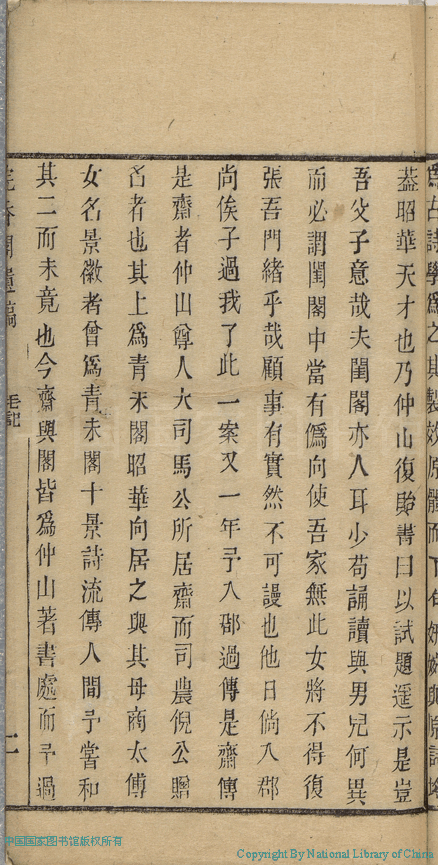 爲古詩學爲之其製效原體而下
葢昭華天才也乃仲山復貽書曰以試題遥示是豈
吾父子意哉夫閨閣亦人耳少苟誦讀與男兒何異
而必謂閨閣中當有僞向使吾家無此女將不得復
張吾門緒乎哉顧事有實然不可謾也他日倘入郡
尚俟子過我了此一案又一年予入郡過傳是齋傳
是齋者仲山尊人大司馬公所居齋而司農倪公贈
名者也其上爲青未閣昭華向居之與其母商太傅
女名景徽者曾爲青未閣十景詩流傳人間予嘗和
其二而未竟也今齋與閣皆爲仲山著書處而予過
遺稿 毛記 二
中国国家图书馆版权所有
Copyright By National Library of China